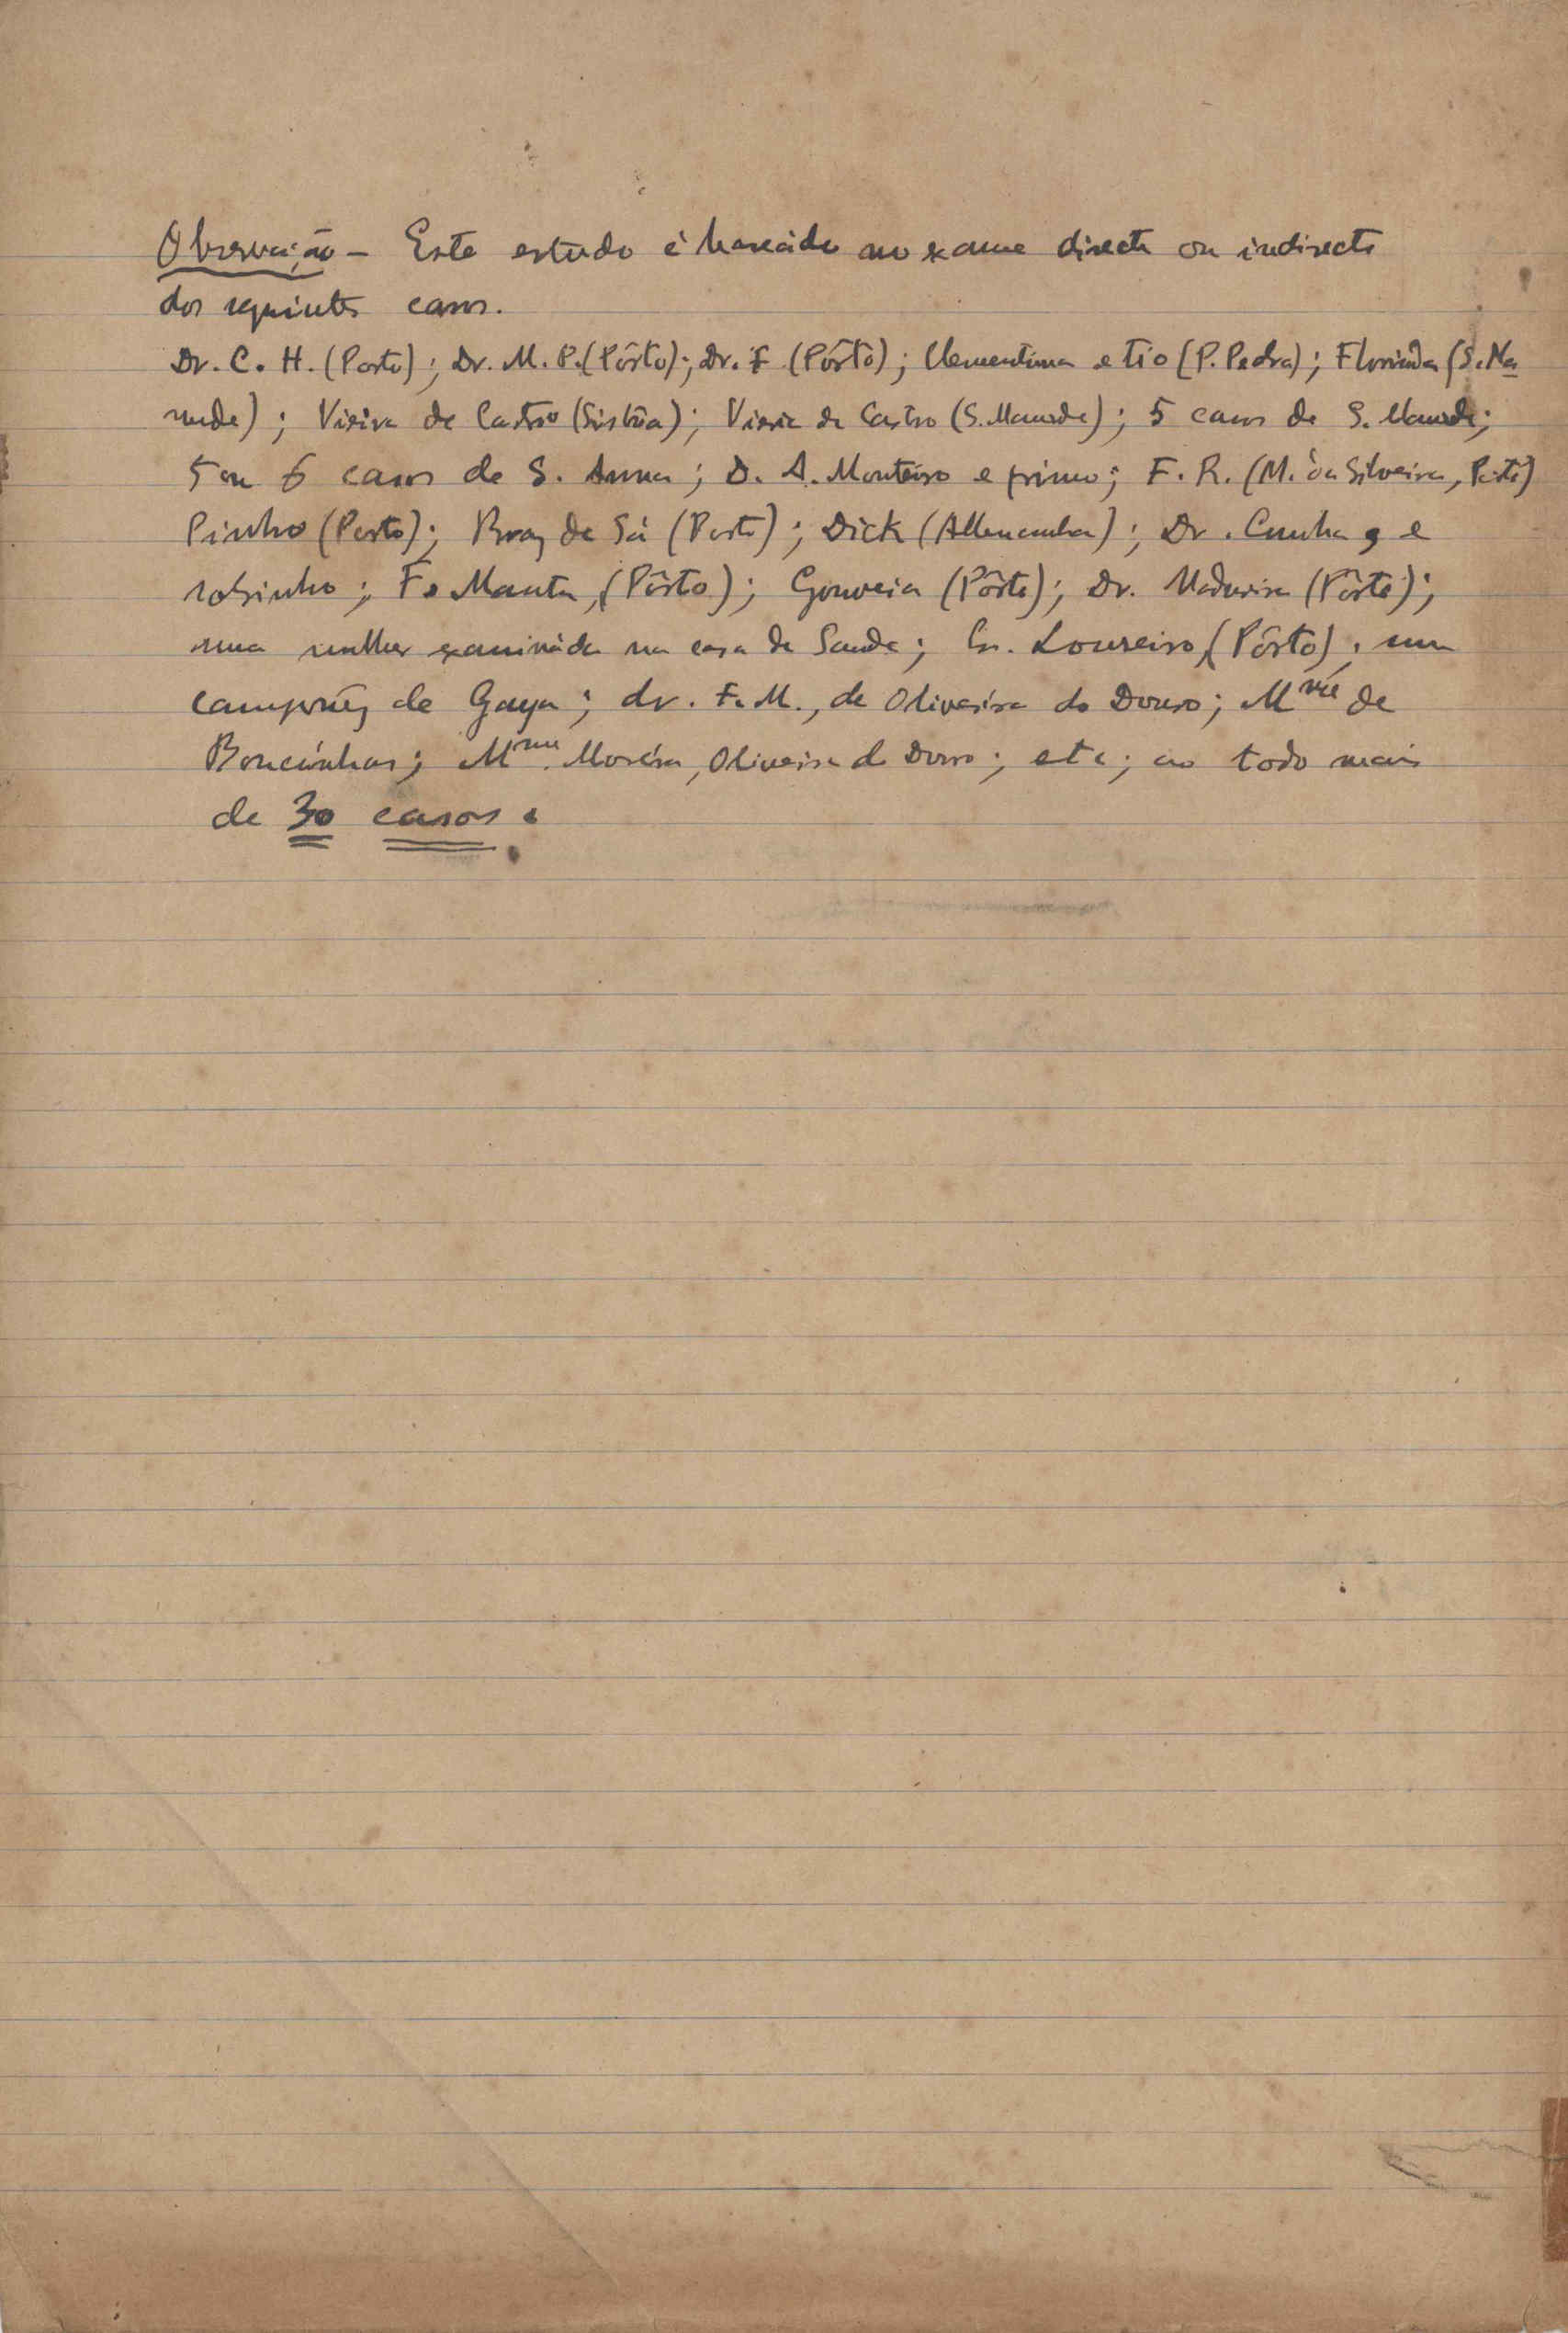 Observação - Este estudo é baseado no exame directo ou indirecto
dos seguintes casos.
Dr. C. H. (Porto); Dr. M. P. (Pôrto); Dr. F (Pôrto); Clementina e tio (P. Pedra); Florinda (S. Ma
mede); Vieira de Castro (Lisbôa); Vieira de Castro (S. Mamede); 5 casos de S. Mamede;
5 ou 6 casos de S. Anna; D. A. Monteiro e primo; F. R. (M. da Silveira, Porto)
Pinho (Porto); Braz de Sá (Porto); Dick (Allemanha); Dr. Cunha e
sobrinho; F. Manta, (Pôrto); Gouveia (Pôrto); Dr. Madureira (Pôrto);
uma mulher examináda na casa de Saude; Loureiro, (Pôrto); um
camponêz de Gaya; dr. F. M., de Oliveira do Douro; M de
Boucinhas; M.me Moreira, Oliveira do Douro; etc; ao todo mais
de 30 casos.